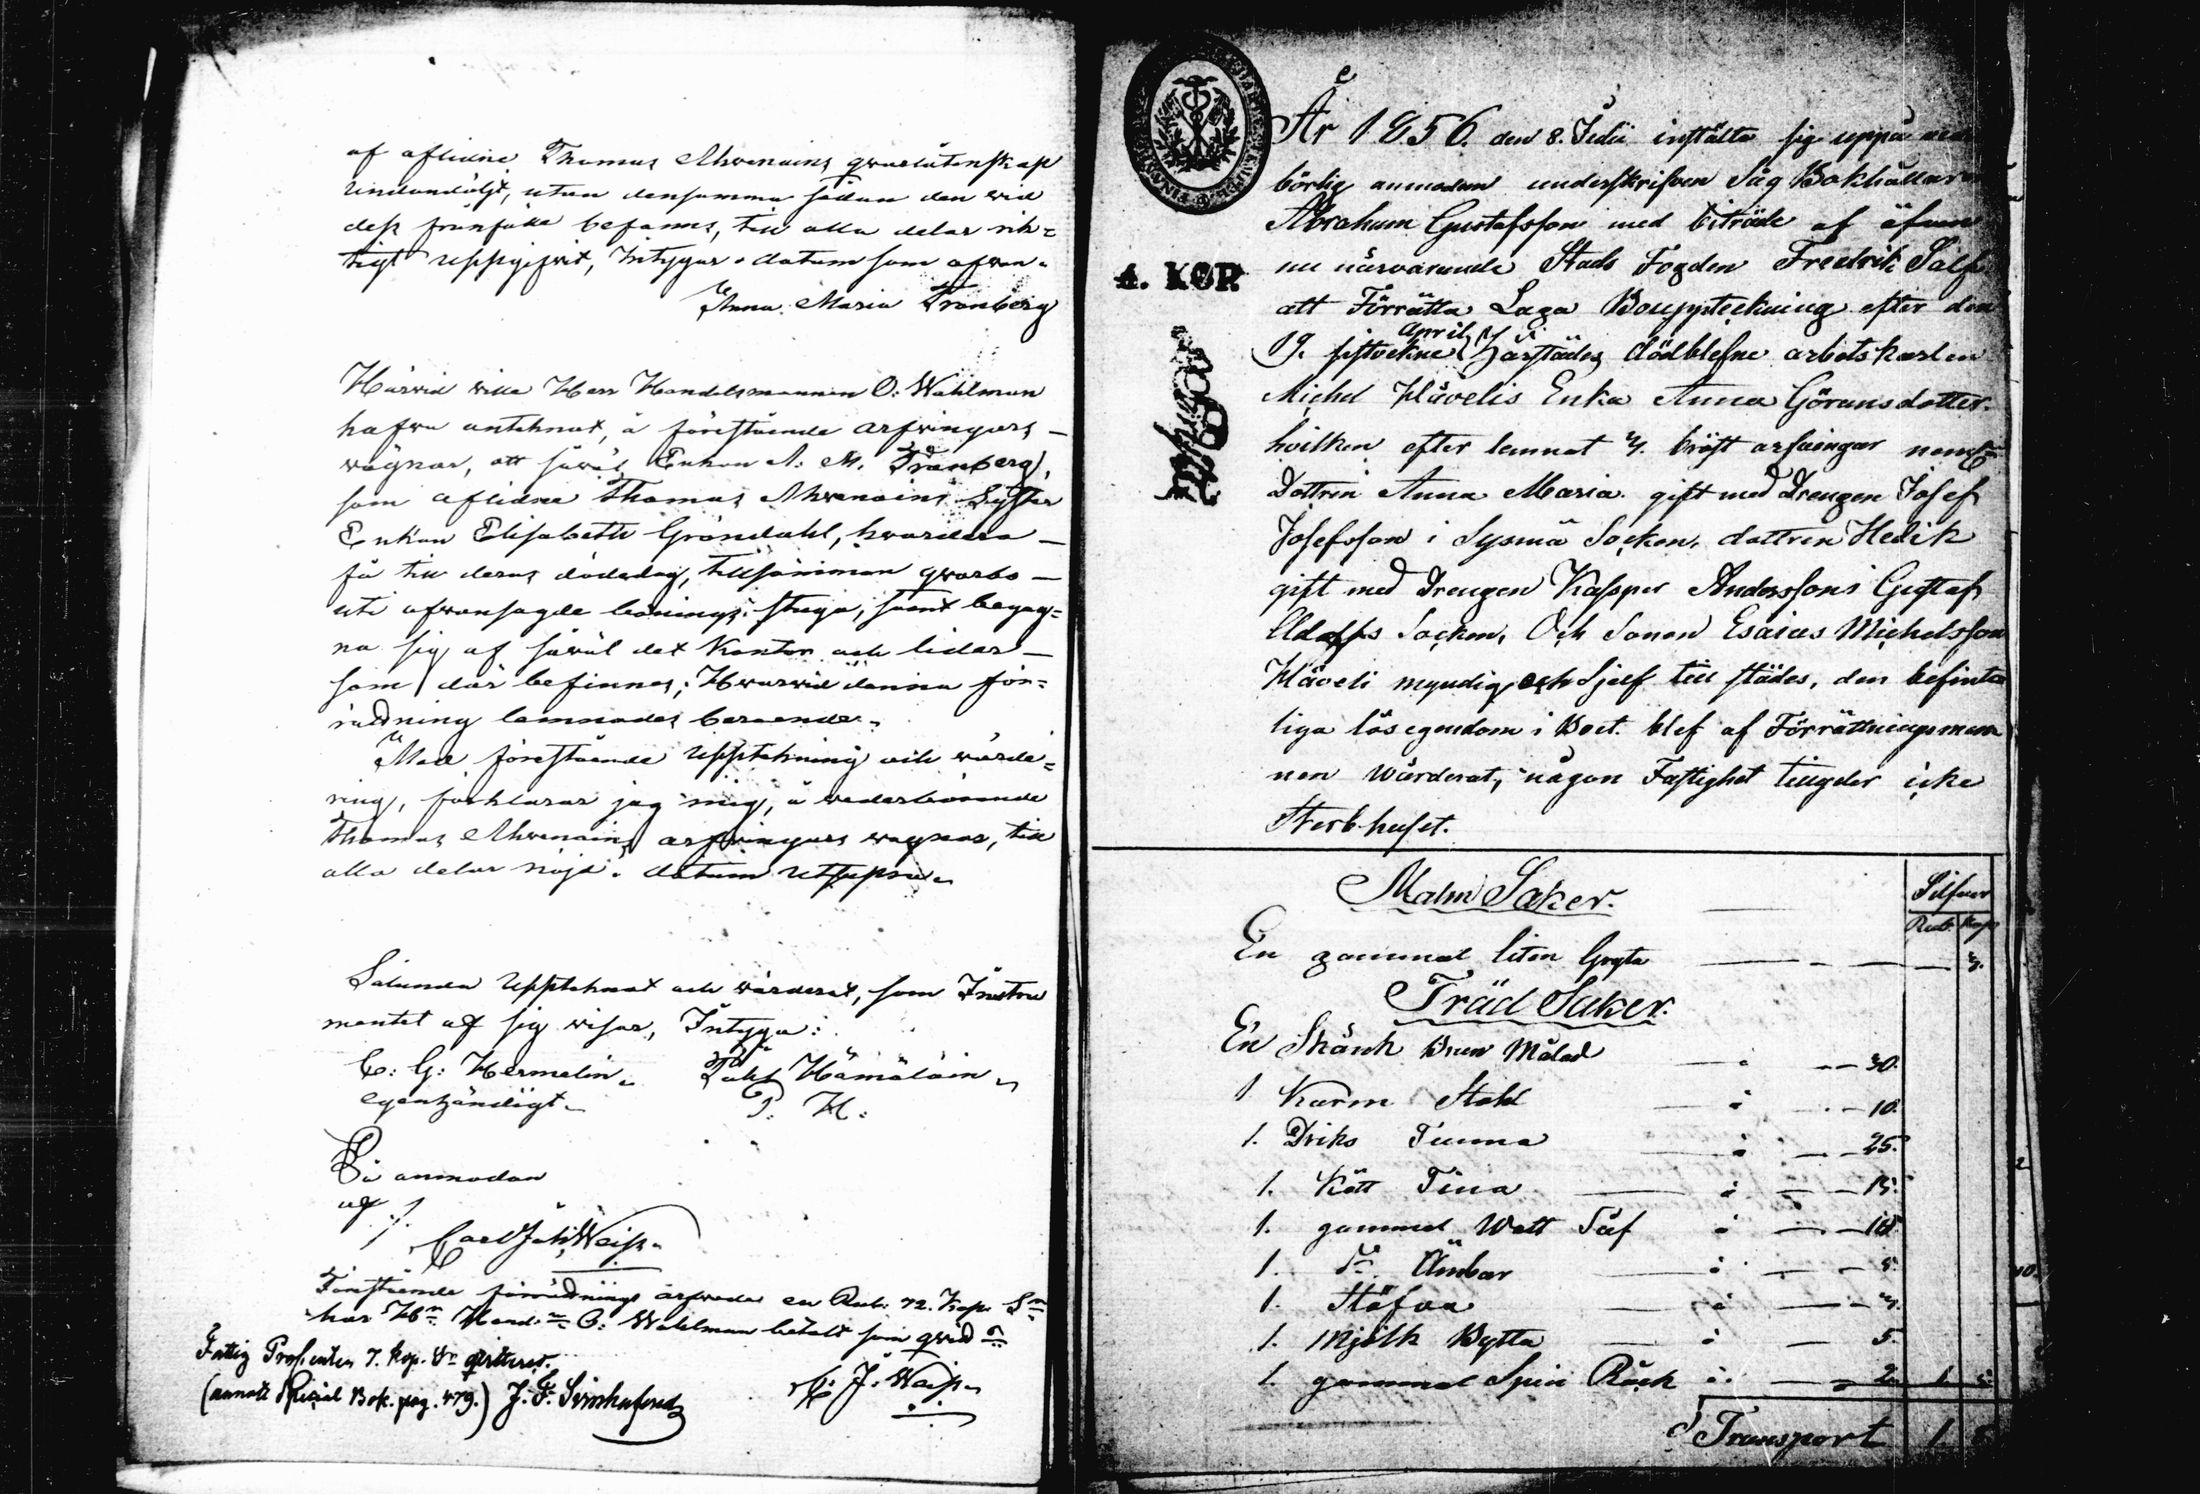 af aflidne Thomas Ahvenains qwarlåtenskap
undandöljt, utan densamma sådan den wid
dess frånfälle befanns, till alla delar rik=
tigt uppgifwit, Intygar. datum som ofvan.
Anna Maria Tranberg
Härvid wille Herr Handelsmannen O: Wahlman
hafva antecknat, å föreståände arfvingars
wägnar, att såwäl Enkan A: M. Tranberg,
som aflidne Thomas Ahvenains Syster
Enkan Elisabeth Gröndahl, hvardera
få till deras dödedag, tillsamman qwarbo
uti ofvansagde bonings stuga, samt begag=
na sig af såväl det Kontor och lider
som där befinnes; Hwarwid denna för=
rättning lemnades beroende.
Med föreståenda Upptekning och wärde=
ring, förklarar jag mig, å vederbörande
Thomas Ahvenains arfvingars wägnar, till
alla delar nöjd. datum utsupra.
Sålunda Upptecknat och wärderat, som Instru
mentet af sig wisar, Intyga:
C: G: Hermelin. Påhl Hämäläin
egenhändigt. P. H:
På anmodan
af
Carl Joh: Weiss.
Föreståände förrättnings arfwode en Rub: 72. Kop. Sr
har Hr Hand: O: Wahlman betalt som qwitt:
C: J: Weiss.
Fattig Procenten 7. kop. Sr qvitteras.
(annott Special Bok. pag. 479.) J. F.
År 1856. den 8. Julii instälte sig uppå
börlig anmodan underskrifven Såg Bokhållaren
Abraham Gustafsson med biträde af äfven
nu närvarande Stads Fogden Fredrik
att Förrätta Laga Bouppteckning efter den
19. sistvekne April härstädes dödblefne arbetskarlen
Michel Klävelis Enka Anna Göransdotter
hvilken efter lemnat 3. bröst arfvingar
Dottren Anna Maria gift med Drengen Josef
Josefsson i Sysmä Socken, dottren Hedvik
gift med Drengen Kasper Anderssons i Gustaf
Adolfs Socken, Och Sonen Esaias Michelsson
Kläveli myndig, och Sjelf till städes, den befint
liga lösegendom i Boet. blef af Förrättningsmän
nen Wärderat, någon Fastighet tillgder icke
Sterbhuset.
A. KOP.
Malm Saker. Silfver
Rub. Kop
En gammal liten Gryta 3.
Träd Saker.
En Skänk Brun Målad 30.
1 Karm Stohl 10.
1. Driks Tunna 25.
1. Kött Tina 15.
1. gammal Watt Såf 10
1. Do Ämbar 5.
1. Stäfva 3.
1. Mjölk Bytta 5.
1. gammal Spin Råck 2. 1. 5.
Transport 1.